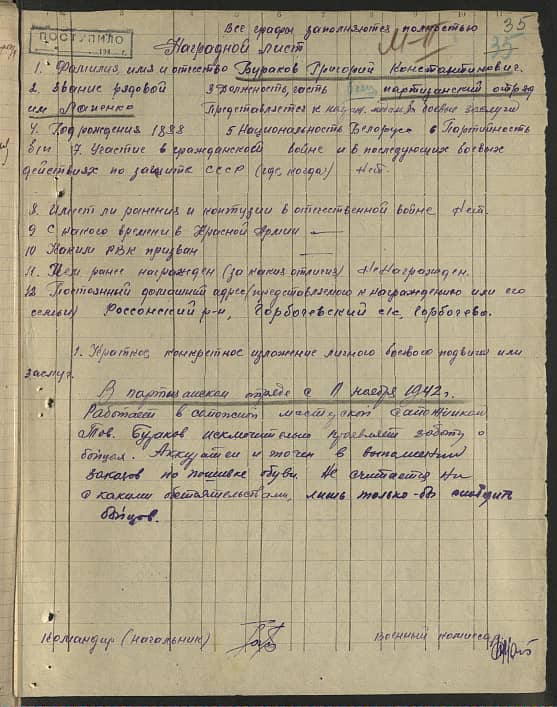 Все графы заполняются полностью
35
ПОСТУПИЛО
Наградной лист
М-II
1. Фамилия, имя и отчество Бураков Григорий Константинович.
2. Звание рядовой 3 Должность, часть партизанский отряд
им Лапенко Представляется к за боевые заслуги
4. Год рождения 1898 5 Национальность Белорус 6 Партийность
б/п 7. Участие в гражданской войне и в последующих боевых
действиях по защите СССР (где, когда) Нет.
8. Имеет ли ранения и контузии в отечественной войне Нет.
9 С какого времени в Красной Армии —
10 Каким РВК призван —
11. Чем ранее награжден (за какие отличия) Не награжден.
12 Постоянный домашний адрес (представляемого к награждению или его
семьи) Россонский р-н, Горбачевский с/с, Горбачево.
1. Краткое, конкретное изложение личного боевого подвига или
заслуг.
В партизанском отряде с 11 ноября 1942 г.
Работает в сапожной мастерской сапожником
Тов. Бураков исключительно проявляет заботу о
бойцах. Аккуратен и точен в выполнении
заказов по пошивке обуви. Не считается ни
с какими обстоятельствами, лишь только-бы
бойцов.
Командир (начальник) Военный комиссар